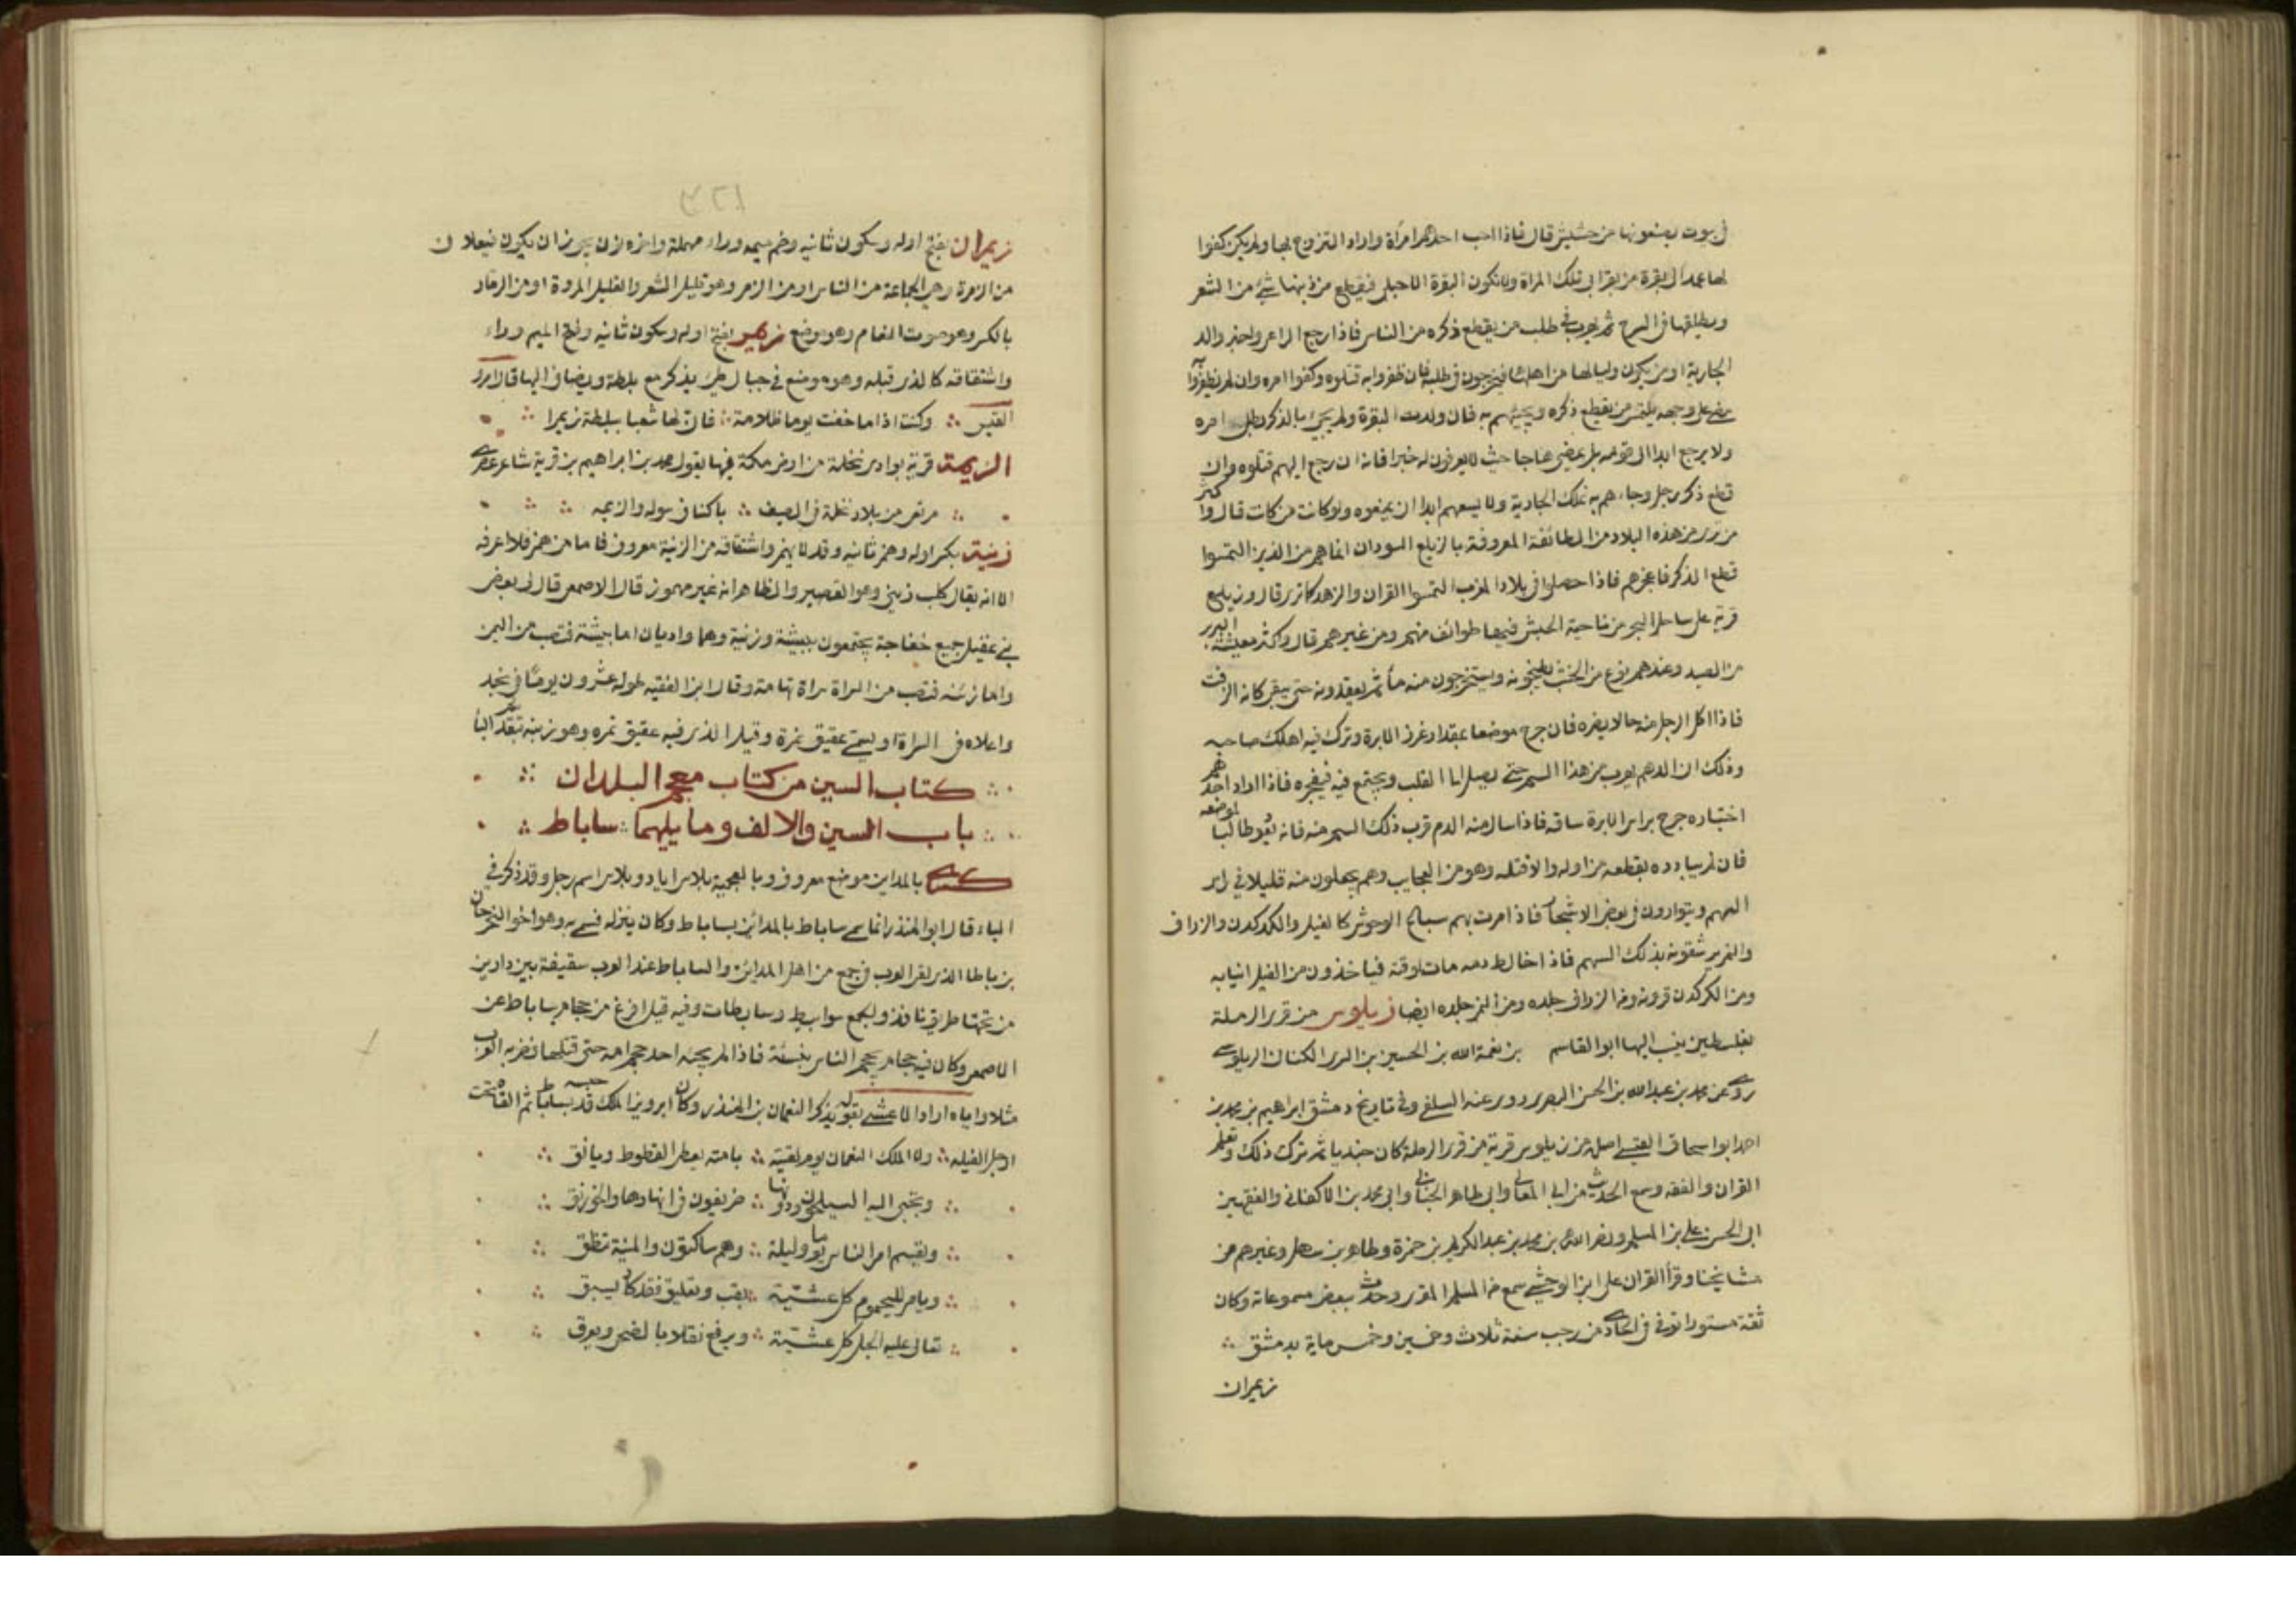 في بيوت يصنعونها من حشيش قال فاذا احب احدهم امرأة واراد التزوج بها ولم يكن كفوا
لها عمد الى بقرة من بقر ابي تلك المراة ولا تكون البقرة الا حبلى فيقطع من ذنبها شئ من الشعر
ويطلقها في السرح ثم يهرب في طلب من يقطع ذكره من الناس فاذا رجع الراعي واخبر والد
الجارية او من يكون وليا لها من اهلها فيخرجون في طلبه فان ظفروا به قتلوه وكفوا امره وان لم يظفروا
مضى على وجهه يلتمس من يقطع ذكره ويجيئهم به فان ولدت البقرة ولم يجئ بالذكر بطل امره
ولا يرجع ابدا الى قومه بل يمضي هاجا حيث لا يعرفون له خبرا فانه ان رجع اليهم قتلوه وان
قطع ذكر رجل وجاءهم به تلك الجارية ولا يسعهم ابدا ان يمنعوه ولو كانت من كانت قال واكثر
من ترى من هذه البلاد من الطائفة المعروفة بالزيلع السودان انما هم من الذين التمسوا
قطع الذكر فاعجزهم فاذا حصلوا في بلاد المغرب التمسوا القران والزهد كما ترى قال وزيلع
قرية على ساحل البحر من ناحية الحبش فيها طوائف منهم ومن غيرهم قال واكثر معيشة البربر
من الصيد وعندهم نوع من الخشب يطبخونه ويستخرجون منه ماء ثم يعقدونه حتى يبقى كانه الزفت
فاذا اكل الرجل منه حالا يضره فان جرح موضعا بمقدار غرز الابرة وترك فيه اهلك صاحبه
وذلك ان الدم يهرب من هذا السم حتى يصل الى القلب ويجتمع فيه فيفجره فاذا اراد احدهم
اختباره جرح براس الابرة ساقه فاذا سال منه الدم قرب ذلك السم منه فانه يعود طالبا لموضعه
فان لم يبادره بقطعه من اوله والا قتله وهو من العجايب وهم يجعلون منه قليلا في راس
السهم ويتوارون في بعض الاشجار فاذا مرت بهم سباع الوحوش كالفيل والكركدن والزراف
والنمر يرشقونه بذلك السهم فاذا خالط دمه مات لوقته فياخذون من الفيل انيابه
ومن الكركدن قرونه ومن الزراف جلده ومن النمر جلده ايضا زيلوس من قرى الرملة
بفلسطين ينسب اليها ابو القاسم بن نعمة الله بن الحسين بن السري الكناني الزيلوسي
روى عن محمد بن عبدالله بن الحسن البصري روى عنه السلفي وفي تاريخ دمشق ابراهيم بن محمد بن
احمد ابو اسحاق القيسي اصله من زيلوس قرية من قرى الرملة كان جنديا ثم ترك ذلك وتعلم
القران والفقه وسمع الحديث من ابي المعالي وابي طاهر الحنائي وابي محمد بن الاكفاني والفقيهين
ابي الحسن علي بن المسلم ونصر الله بن محمد بن عبد الكريم بن حمزة وطاهر بن سهل وغيرهم من
مشايخنا وقرأ القران على ابن الوحشي سمع من المسلم المقرى وحدث ببعض مسموعاته وكان
ثقة مستورا توفي في الحادي من رجب سنة ثلاث وخمسين وخمس ماية بدمشق
زيمران
زيمران بفتح اوله وسكون ثانيه وضم ميمه وراء مهملة واخره نون يجوز ان يكون فيعلان
من الزمرة وهي الجماعة من الناس او من الزمر وهو قليل الشعر والقليل المروة او من الزمار
بالكسر وهو صوت النعام وهو موضع زيمر بفتح اوله وسكون ثانيه وفتح الميم وراء
واشتقاقه كالذي قبله وهو موضع في جبال طيئ يذكر مع بلطة ويضاف اليها قال امرؤ
القيس وكنت اذا ما خفت يوما ظلامة فان لها شعبا ببلطة زيمرا
الزيمة قرية بوادي نخلة من ارض مكة فيها يقول محمد بن ابراهيم بن قرية شاعر عصري
مرتعي من بلاد نخلة في الصيف باكناف سوله والزيمه
زينة بكسر اوله وهمز ثانيه وقد لا يهمز واشتقاقه من الزينة معروف فاما من همز فلا اعرفه
الا انه يقال كلب زيني وهو القصير والظاهر انه غير مهموز قال الاصمعي قال لي بعض
بني عقيل جميع خفاجة يجتمعون ببيشة وزنية وهما واديان اما بيشة فتصب من اليمن
واما زينه فتصب من السراة سراة تهامة وقال ابن الفقيه طوله عشرون يوما في نجد
واعلاه في السراة ويسمى عقيق تمرة وقيل الذي فيه عقيق تمره وهو زينه بتقديم الباء
كتاب السين من كتاب معجم البلدان
باب السين والالف وما يليهما ساباط
كسرى بالمداين موضع معروف وبالعجمية بلاس اباد وبلاس اسم رجل وقد ذكر في
الباء قال ابو المنذر انما سمي ساباط بالمدائن بساباط وكان ينزله فسمي به وهو اخو النخيرجان
بن باطا الذي لقي العرب في جمع من اهل المدائن والساباط عند العرب سقيفة بين دارين
من تحتها طريق نافذ والجمع سوابيط وسابطات وفيه قيل افرغ من حجام ساباط عن
الاصمعي وكان فيه حجام يحجم الناس بنسئة فاذا لم يجئه احد حجم امه حتى قتلها فضربه العرب
مثلا واياه اراد الاعشى بقوله يذكر النعمان بن المنذر وكان ابرويز الملك قد حبسه بساباط ثم القاه تحت
ارجل الفيله ولا الملك النعمان يوم لقيته بامته يعطي القطوط ويافق
وتجبى اليه السيلحون ودونها صريفون في انهارها والخورنق
ويقسم امر الناس يوما وليلة وهم ساكتون والمنية تنطق
ويامر لليحموم كل عشية بقت وتعليق فقد كاد يسبق
تعالى عليه الجل كل عشية ويرفع نقلا بالضحى ويعرق